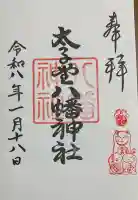 奉拝
太子堂八幡神社
令和八年一月十八日